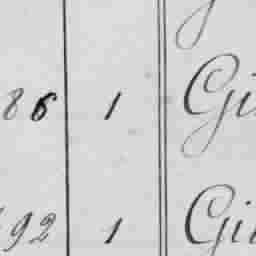 86 1 Gi
92 1 Gi